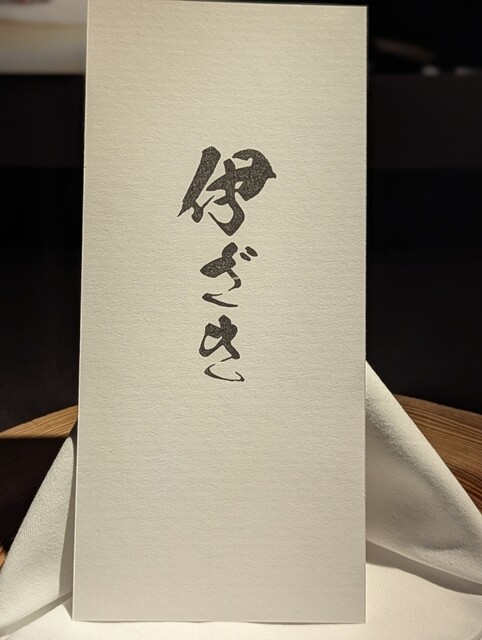 伊ざき